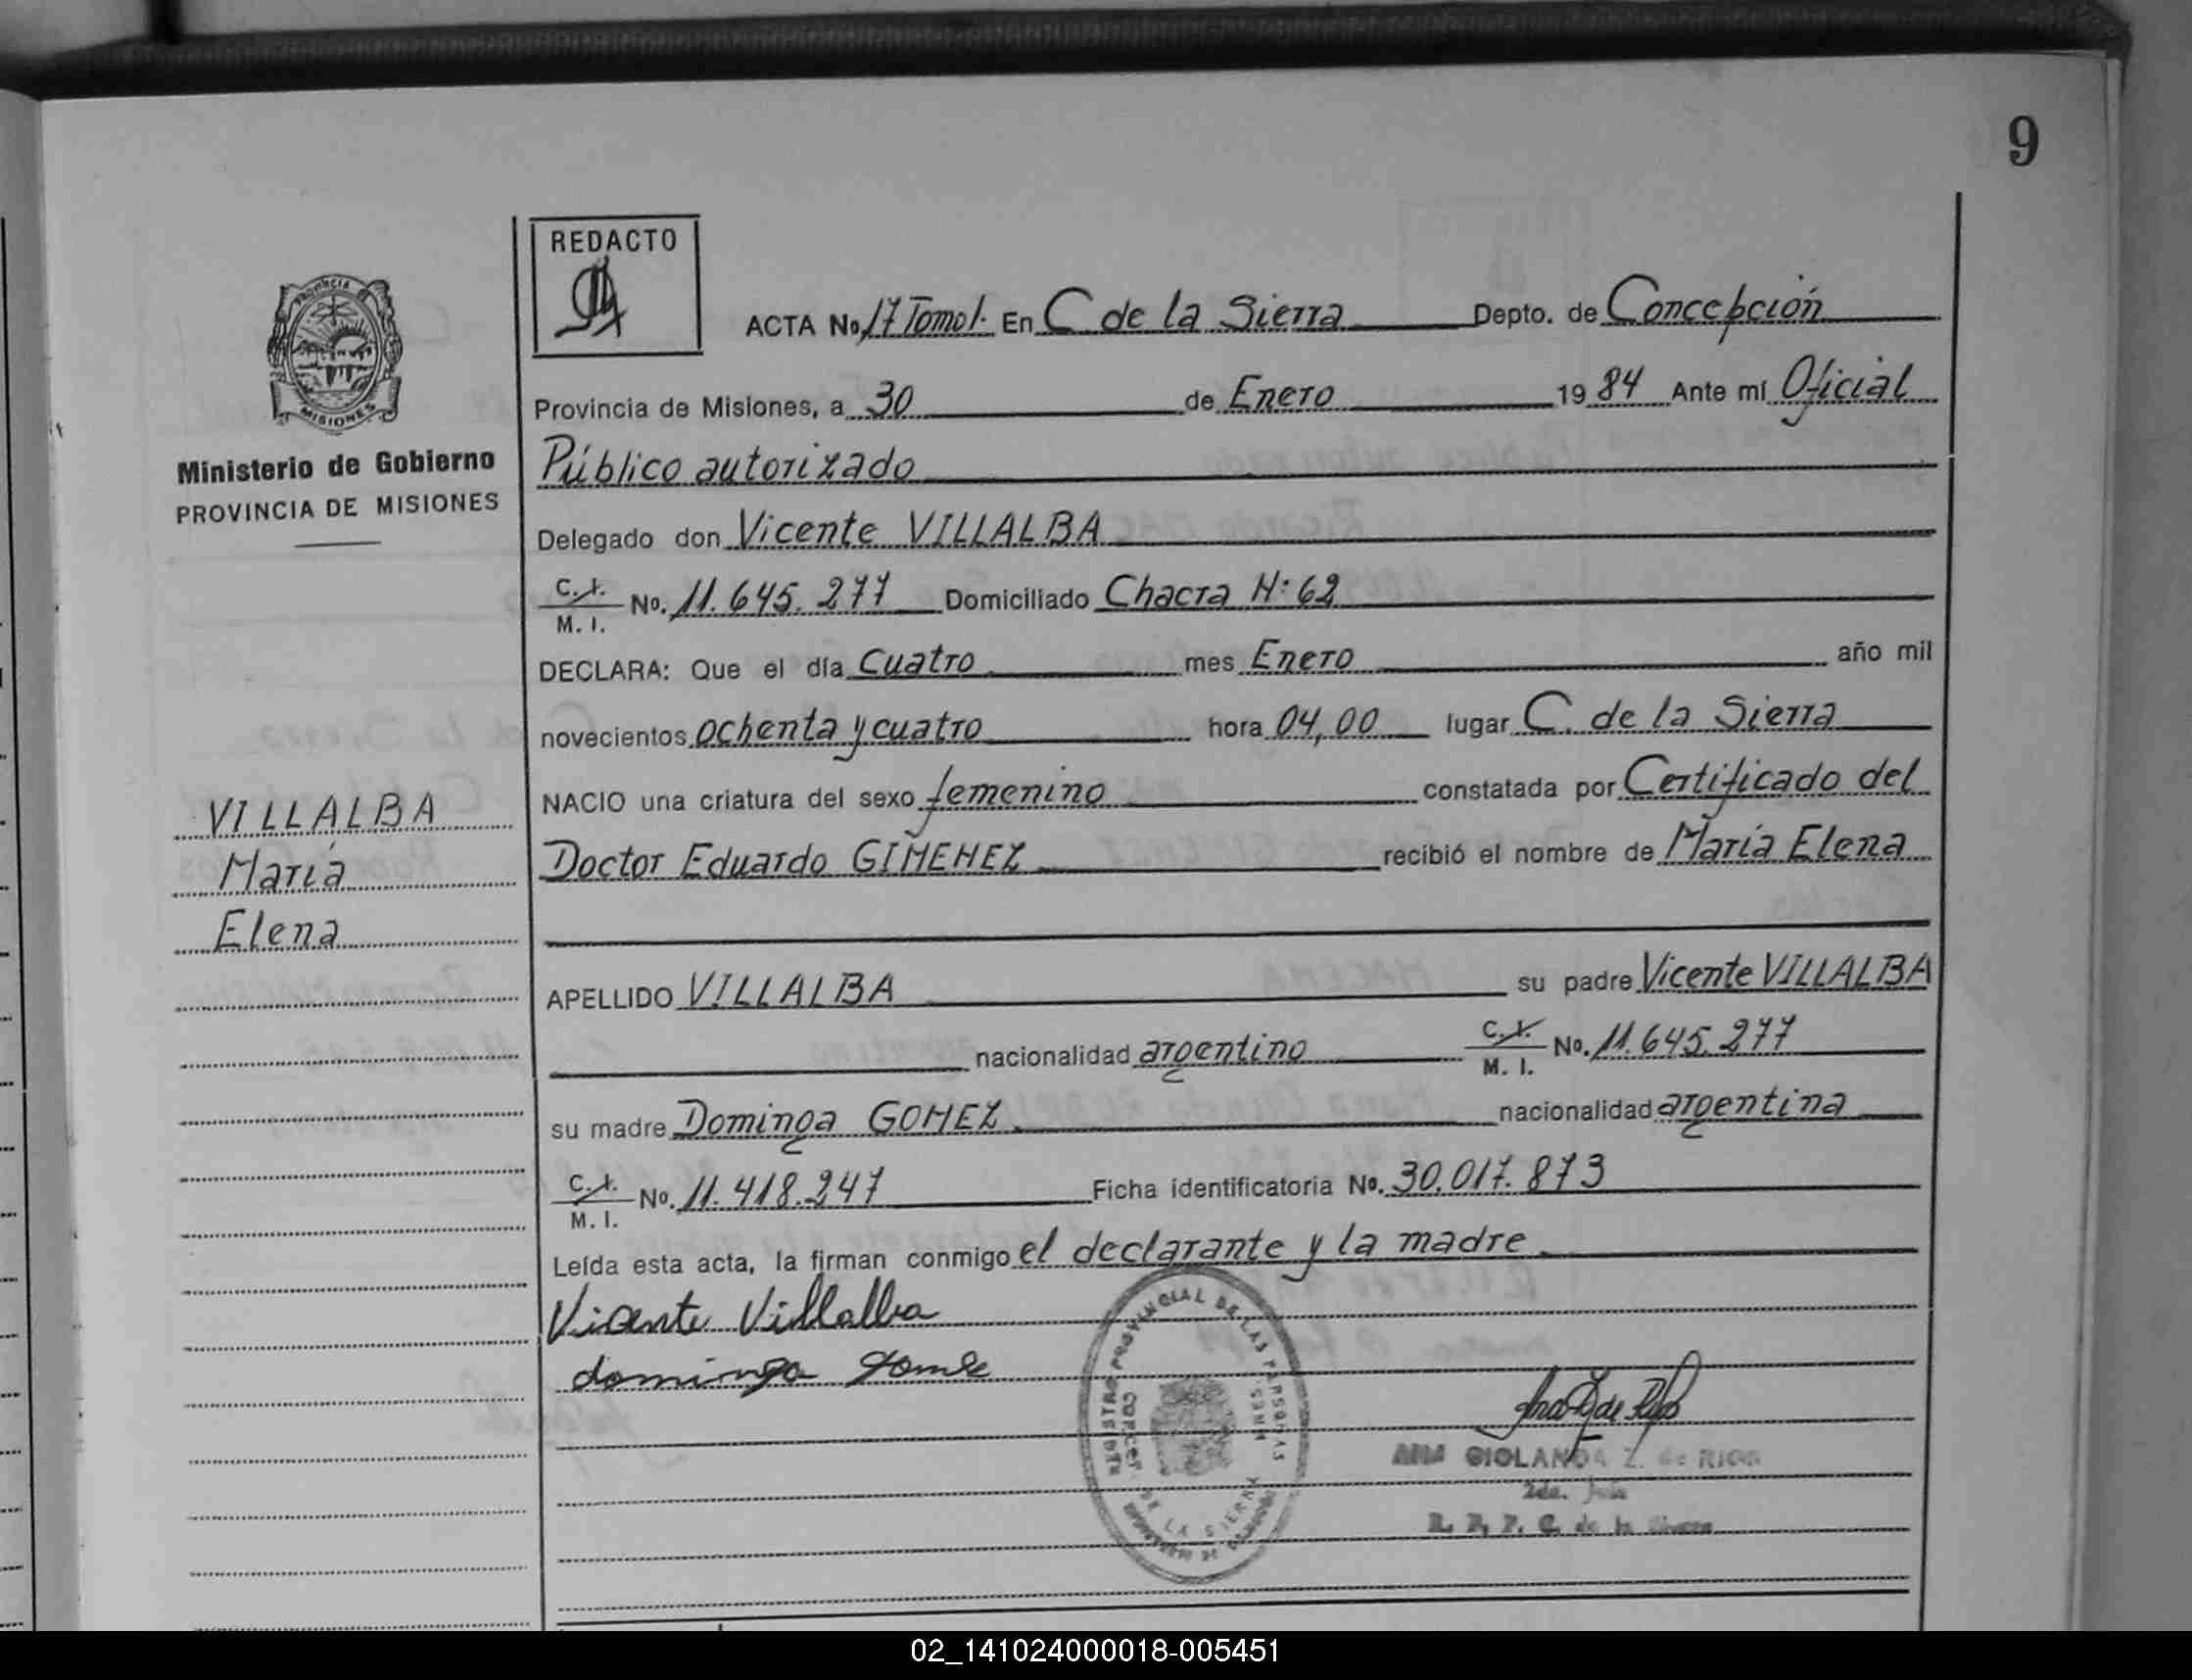 9
REDACTO
ACTA No. 17 Tomo I. En C de la Sierra Depto. de Concepción
Provincia de Misiones, a 30 de Enero 1984 Ante mí Oficial
Público autorizado
Delegado don Vicente VILLALBA
C. I.
M. I. No. 11.645.277 Domiciliado Chacra N: 62
DECLARA: Que el día Cuatro mes Enero año mil
novecientos ochenta y cuatro hora 04,00 lugar C. de la Sierra
NACIO una criatura del sexo femenino constatada por Certificado del
Doctor Eduardo GIMENEZ recibió el nombre de María Elena
APELLIDO VILLALBA su padre Vicente VILLALBA
nacionalidad argentino C. I.
M. I. No. 11.645.277
su madre Dominga GOMEZ nacionalidad argentina
C. I.
M. I. No. 11.418.247 Ficha identificatoria No. 30.017.873
Leída esta acta, la firman conmigo el declarante y la madre
Vicente Villalba
dominga
PROVINCIA DE MISIONES
Ministerio de Gobierno
PROVINCIA DE MISIONES
VILLALBA
María
Elena
REGISTRO PROVINCIAL DE LAS PERSONAS
DE LA SIERRA
GIOLANDA Z. de RIOS
2da. Jefe
R. P. P. C. de la Sierra
02_141024000018-005451